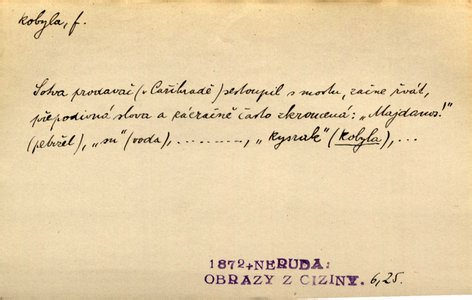 kobyla, f.
Sotva prodavač (v Cařihradě) sestoupil s mostu, začne řvát,
přepodivná slova a zázračně často zkroucená: „Majdanos!"
(petržel), „su" (voda), ............, „kysrak" (kobyla), ...
1872+NERUDA:
OBRAZY Z CIZINY. 6,25.